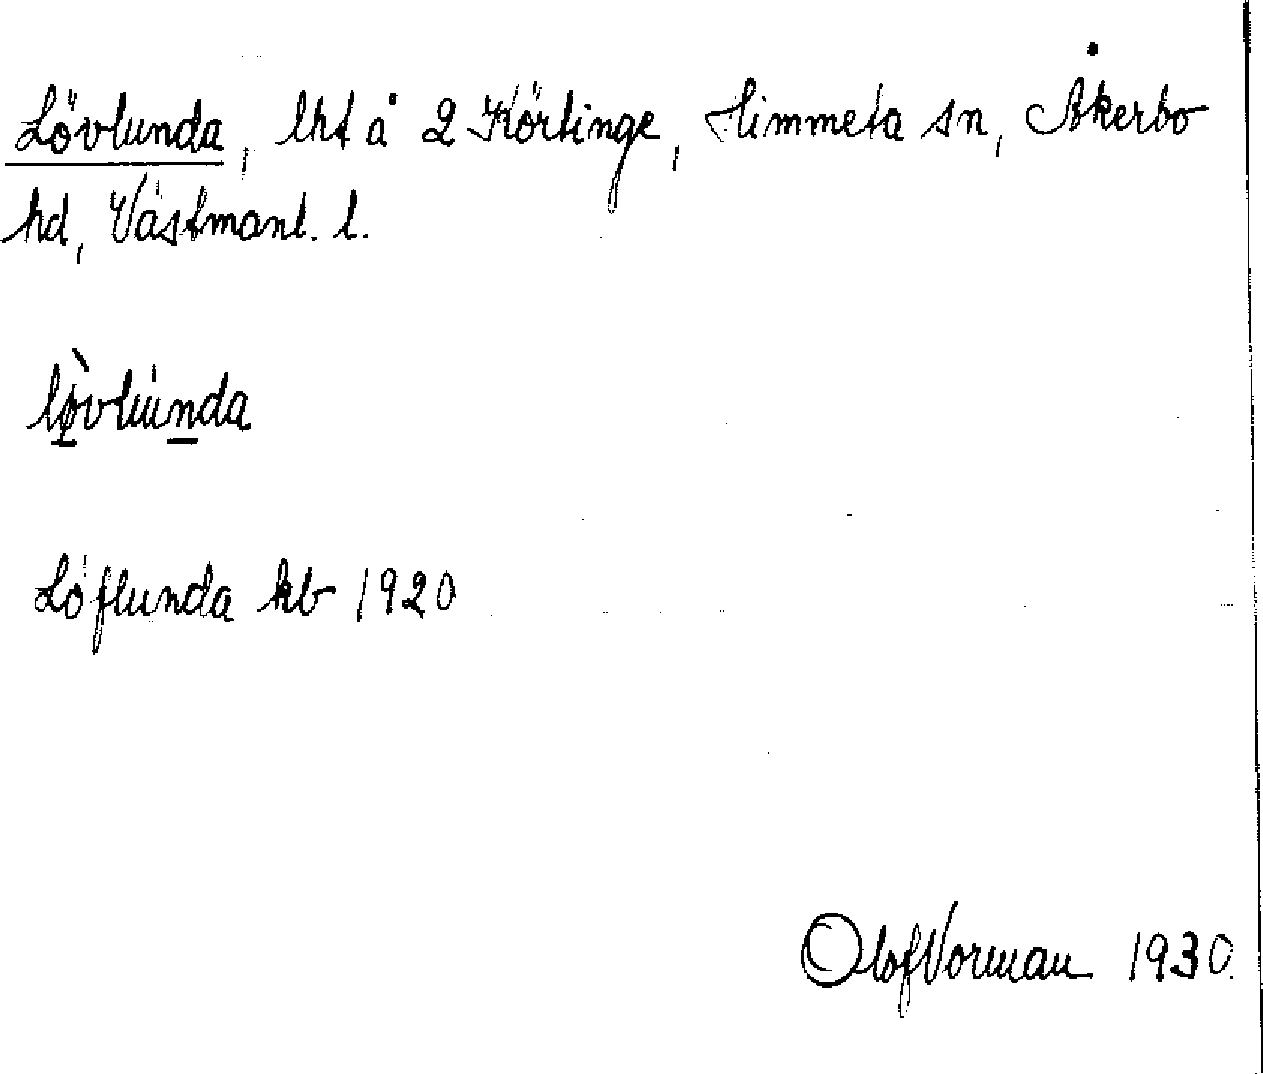 Lövlunda, lht å 2 Körtinge, Himmeta sn, Åkerbo
hd, Västmanl. l.
lø̀vlu̇nda
Löflunda kb 1920
Olof Vorman 1930.